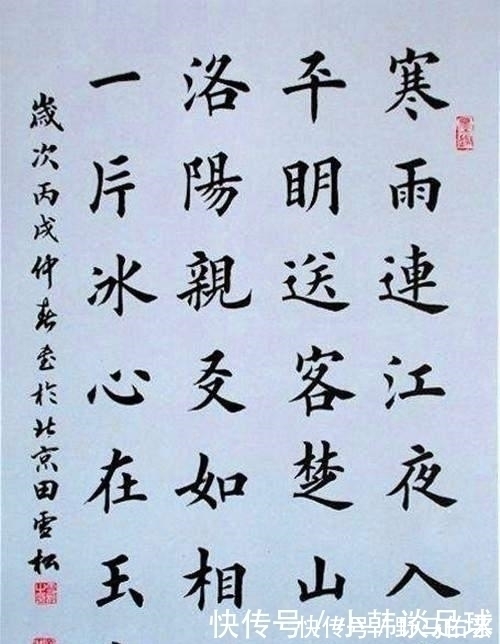 寒雨連江夜入
平明送客楚山
洛陽親友如相
一片冰心在玉
歲次丙戌仲春書於北京田雪松
快传号/